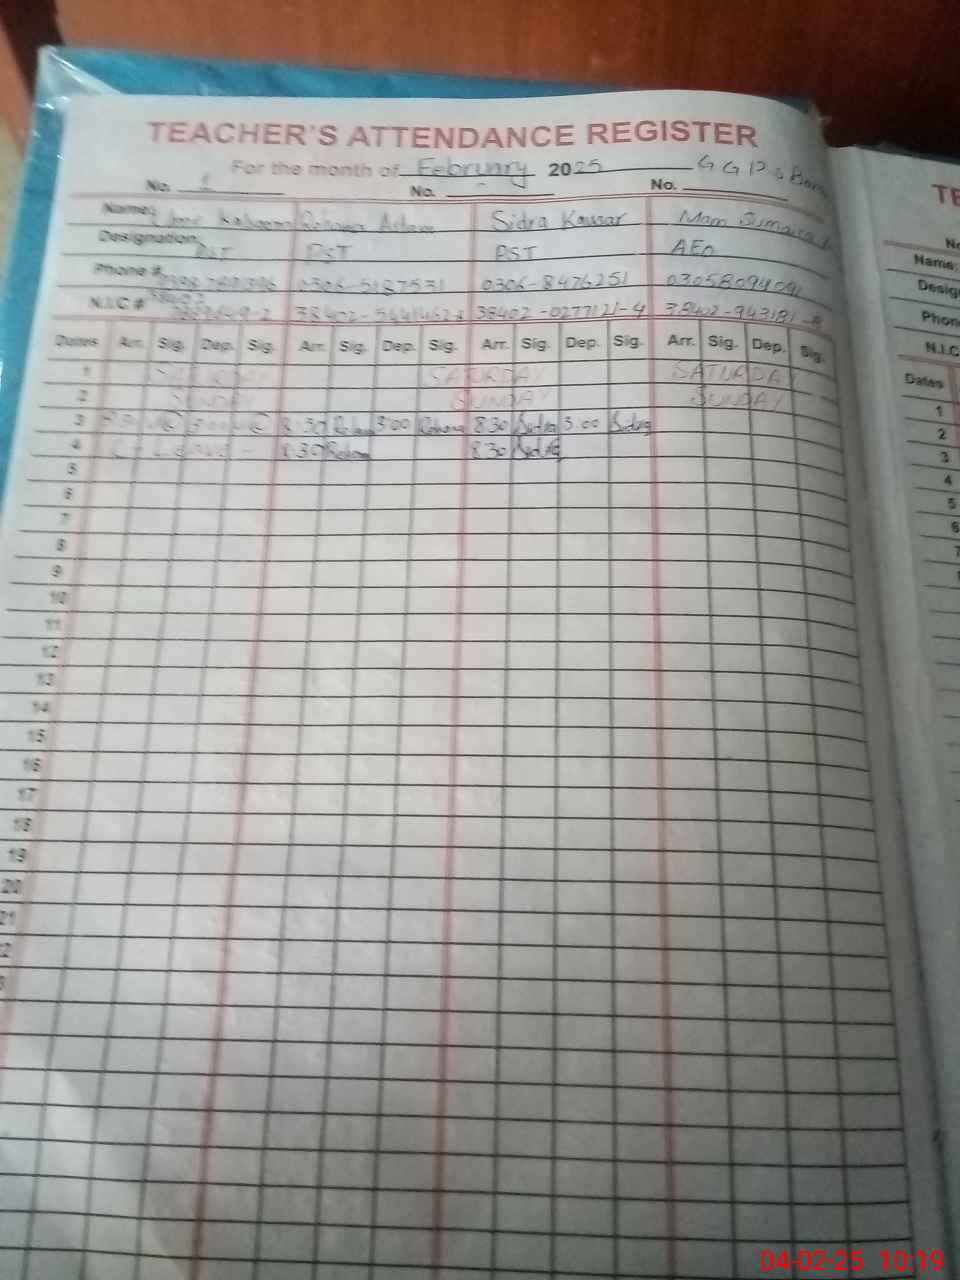 TEACHER'S ATTENDANCE REGISTER
For the month of February 2025 G G P S
No. 1 No. No.
Name: Kalsoom Rehana Aslam Sidra Kausar Mam Sumaira
Designation PST PST PST AEO
Phone # 0306-5187531 0306-8476251 03058094091
N.I.C # 38402 38402- 38402-0277121-4 38402-943181-
Dates Arr. Sig. Dep. Sig. Arr. Sig. Dep. Sig. Arr. Sig. Dep. Sig. Arr. Sig. Dep. Sig.
1 SATURDAY SATURDAY SATURDAY
2 SUNDAY SUNDAY SUNDAY
3 8:30 3:00 8:30 Rehana 3:00 Rehana 8:30 Sidra 3:00 Sidra
4 C-Leave - 8:30 Rehana 8:30 Sidra
5
6
7
8
9
10
11
12
13
14
15
16
17
18
19
20
21
TE
Name:
Design
Phon
N.I.C
Dates
1
2
3
4
5
6
7
04-02-25 10:19